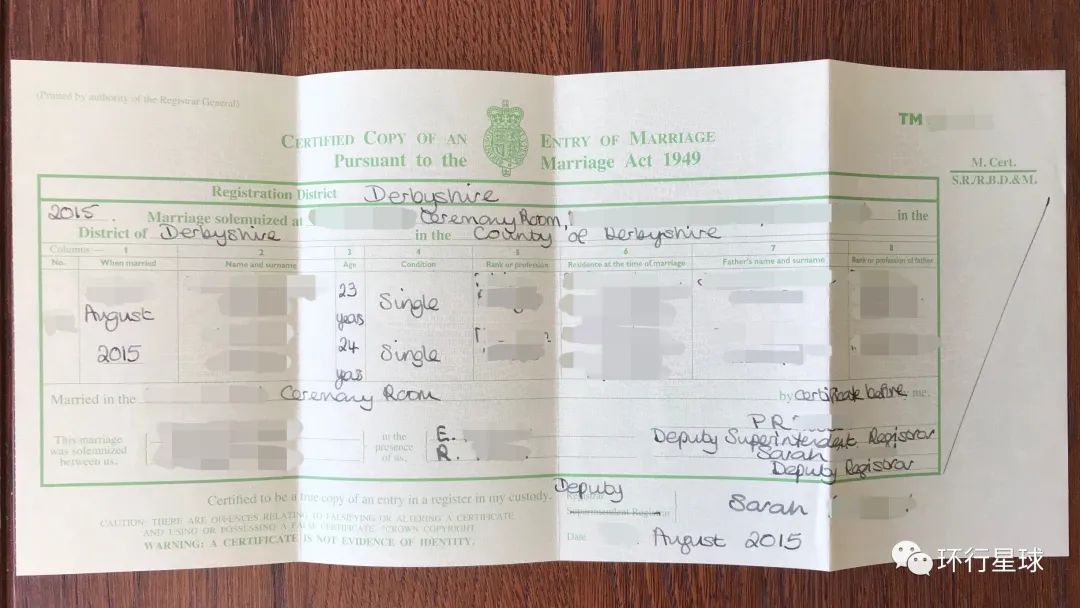 (Printed by authority of the Registrar General)
CERTIFIED COPY OF AN ENTRY OF MARRIAGE
Pursuant to the Marriage Act 1949
TM
M. Cert.
S.R./R.B.D.&M.
Registration District Derbyshire
2015. Marriage solemnized at Ceremony Room, in the
District of Derbyshire in the County of Derbyshire
Columns:— 1 2 3 4 5 6 7 8
No. When married Name and surname Age Condition Rank or profession Residence at the time of marriage Father's name and surname Rank or profession of father
23
August years Single
2015 24 Single
years
Married in the Ceremony Room by certificate before me.
This marriage
was solemnized
between us.
in the
presence
of us.
E.
R.
P R
Deputy Superintendent Registrar
Sarah
Deputy Registrar
Certified to be a true copy of an entry in a register in my custody.
Deputy
Registrar
Superintendent Registrar
Sarah
CAUTION: THERE ARE OFFENCES RELATING TO FALSIFYING OR ALTERING A CERTIFICATE
AND USING OR POSSESSING A FALSE CERTIFICATE. ©CROWN COPYRIGHT
WARNING: A CERTIFICATE IS NOT EVIDENCE OF IDENTITY.
Date August 2015
环行星球